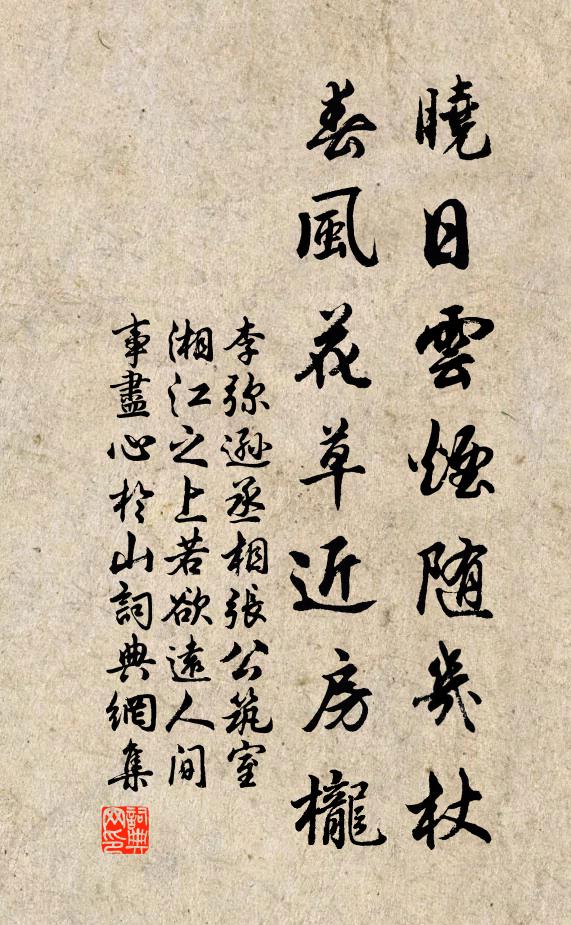 曉日雲煙随几杖
春風花草近房櫳
李弥遜丞相張公筑室
湘江之上若欲遠人间
事盡心於山詞典網集
詞典
网印